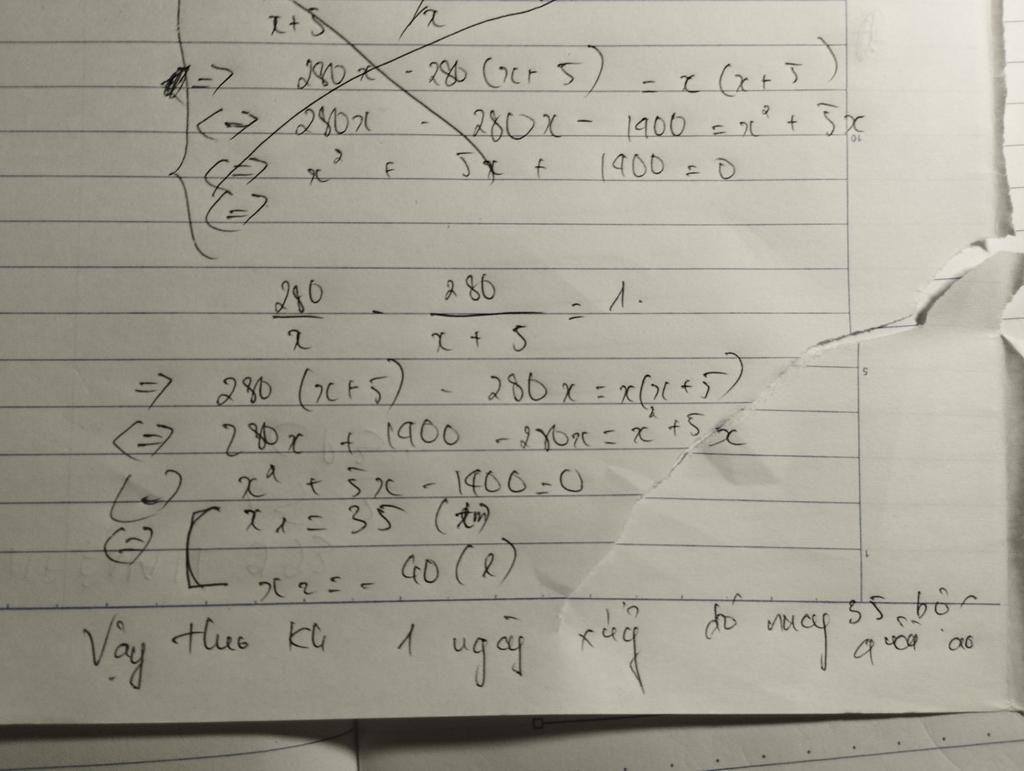 x+5 /x
=> 280x - 280(x+5) = x(x+5)
<=> 280x - 280x - 1400 = x² + 5x
<=> x² + 5x + 1400 = 0
<=>
280/x - 280/(x + 5) = 1.
=> 280(x+5) - 280x = x(x+5)
<=> 280x + 1400 - 280x = x² + 5x
x² + 5x - 1400 = 0
<=> [ x₁ = 35 (tm)
x₂ = - 40 (l)
Vậy theo KH 1 ngày xưởng đó may 35 bộ
quần áo